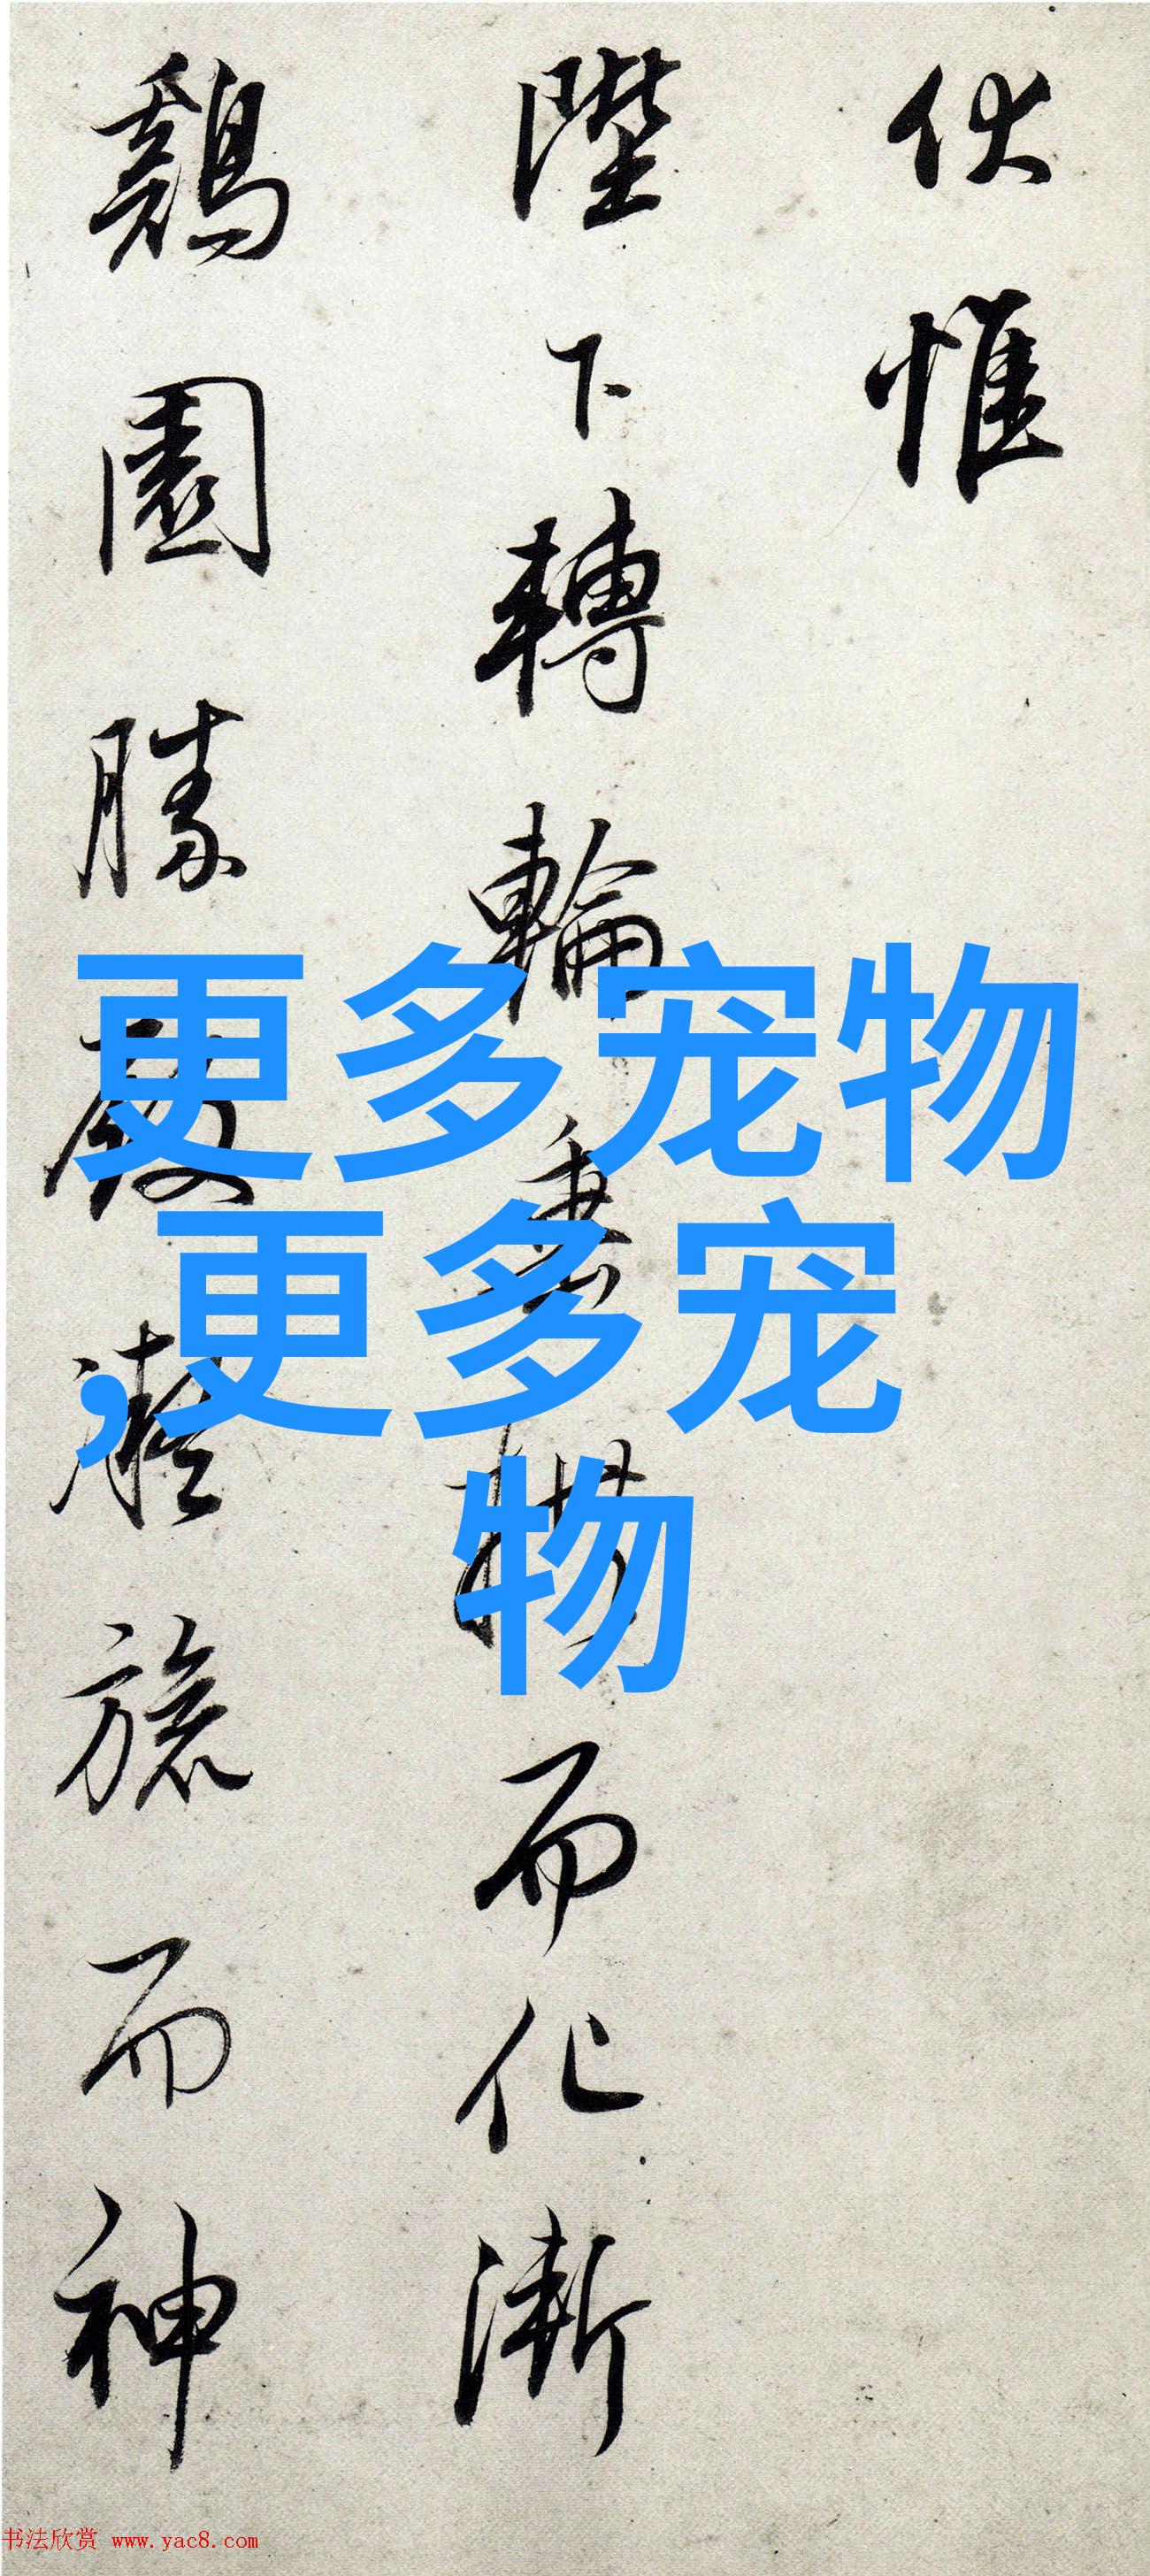 伏惟
陛下轉輪垂拱而化漸
鷄園勝殿凝旒而神
更多宠物
,更多宠
物
书法欣赏 www.yac8.com